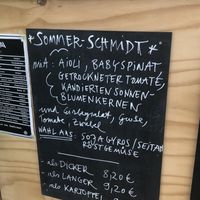 *SOMMER-SCHMIDT*
MIT: AIOLI, BABYSPINAT
GETROCKNETER TOMATE,
KANDIERTEN SONNEN-
BLUMENKERNEN
und Eisbergsalat, Gurke,
Tomate, Zwiebel
WAHL AUS: SOJAGYROS/SEITAN
RÖSTGEMÜSE
- als DICKER 8,20€
- als LANGER 9,20€
- als KARTOFFEL